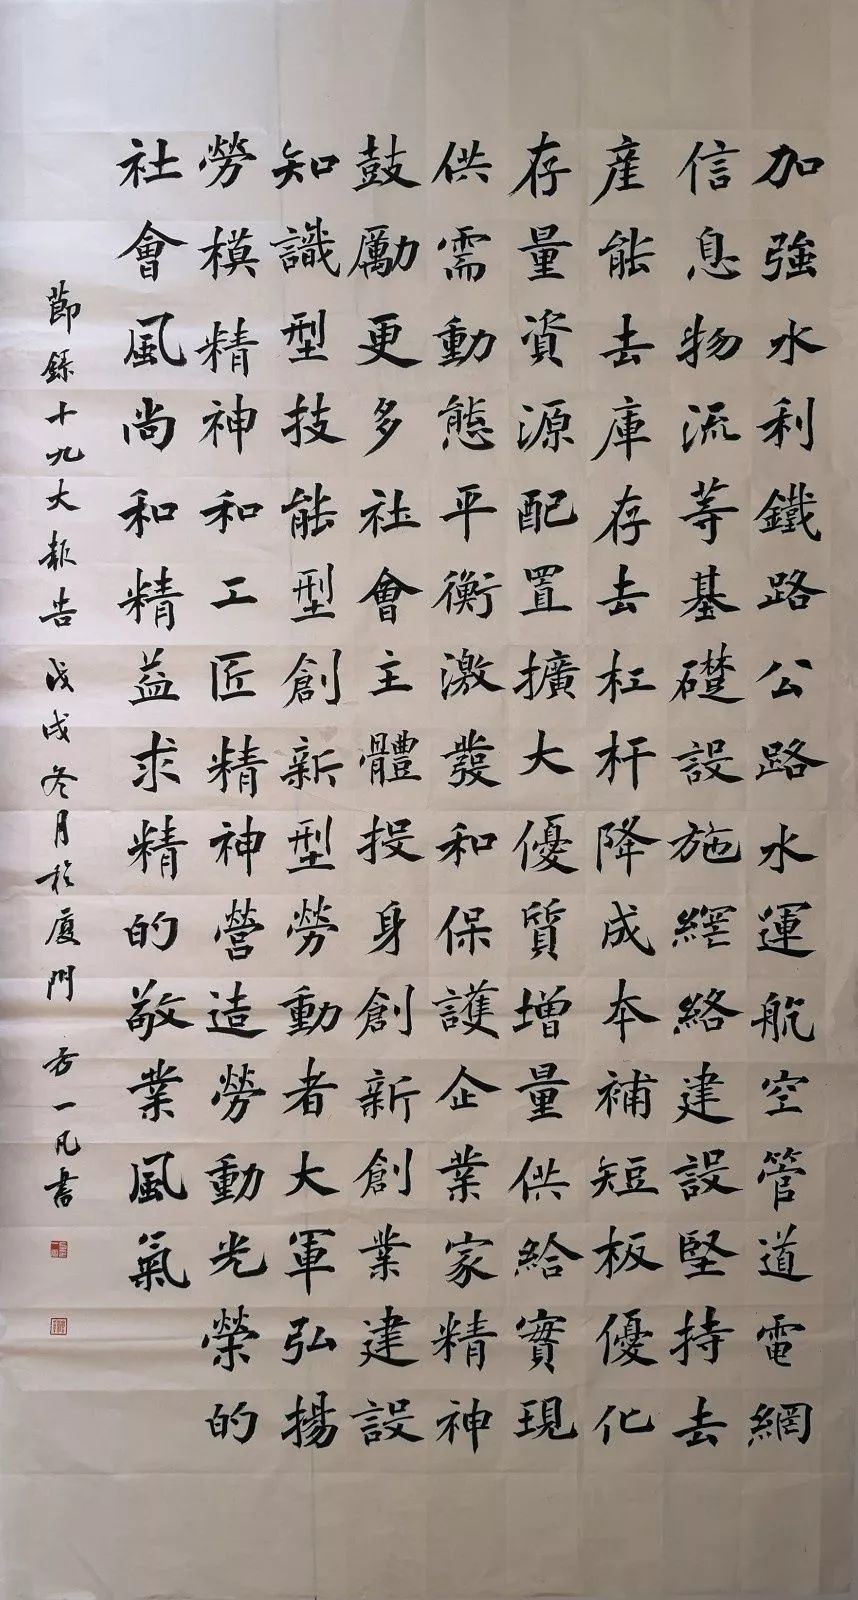 加強水利鐵路公路水運航空管道電網
信息物流等基礎設施網絡建設堅持去
産能去庫存去杠杆降成本補短板優化
存量資源配置擴大優質增量供給實現
供需動態平衡激發和保護企業家精神
鼓勵更多社會主體投身創新創業建設
知識型技能型創新型勞動者大軍弘揚
勞模精神和工匠精神營造勞動光榮的
社會風尚和精益求精的敬業風氣
節錄十九大報告戊戌冬月於廈門 方一凡書